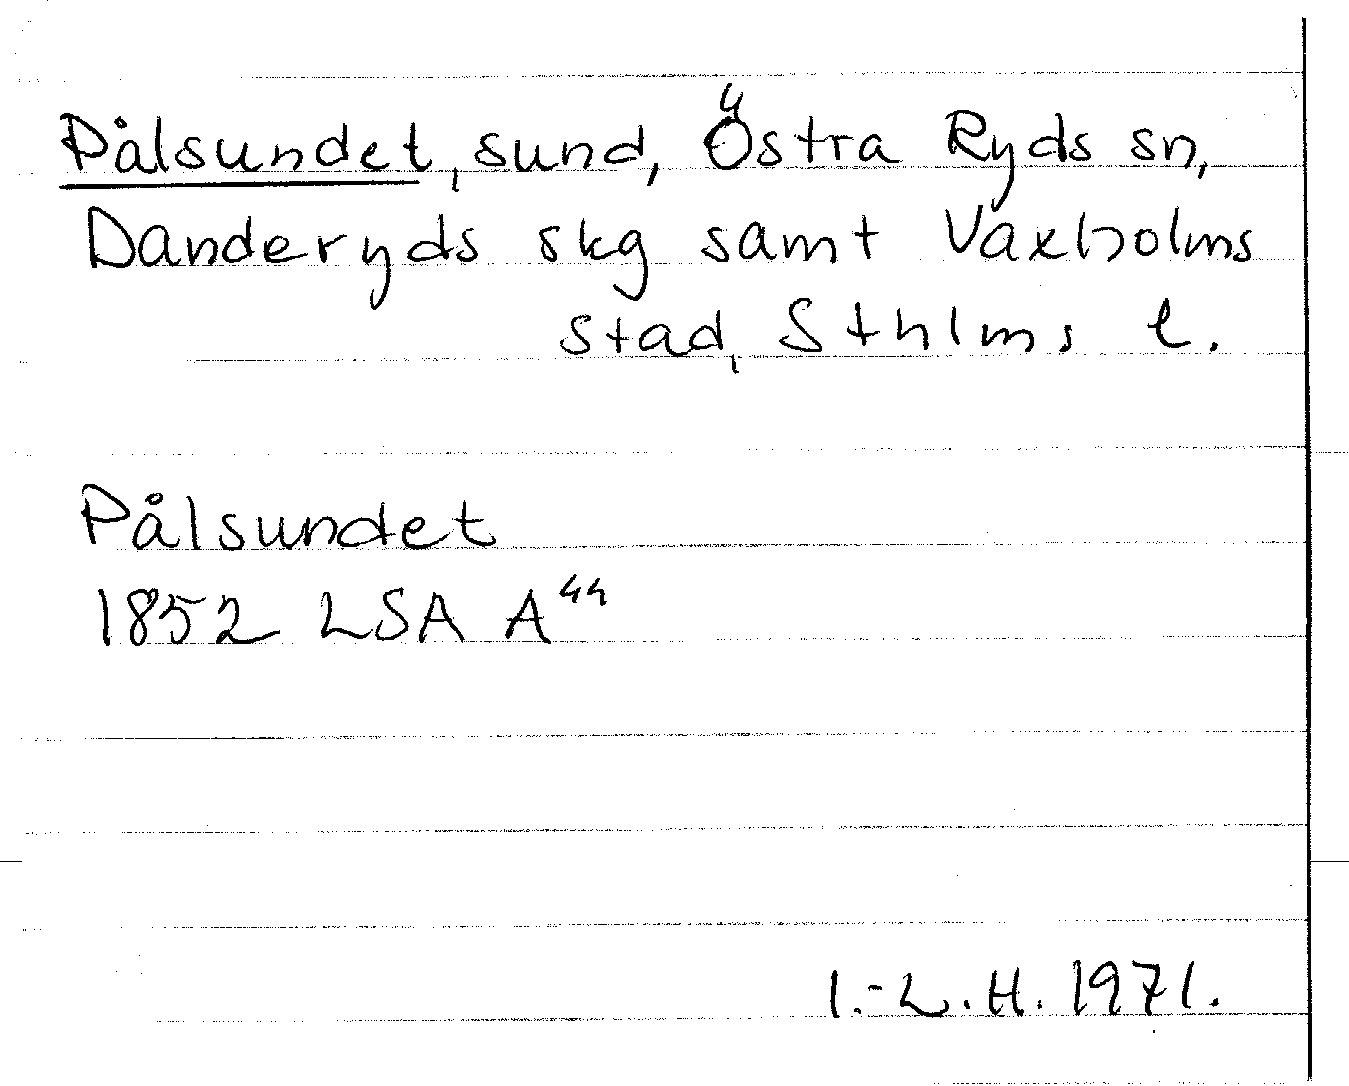 Pålsundet, sund, Östra Ryds sn,
Danderyds skg samt Vaxholms
stad, Sthlms l.
Pålsundet
1852 LSA A44
I.-L.H. 1971.